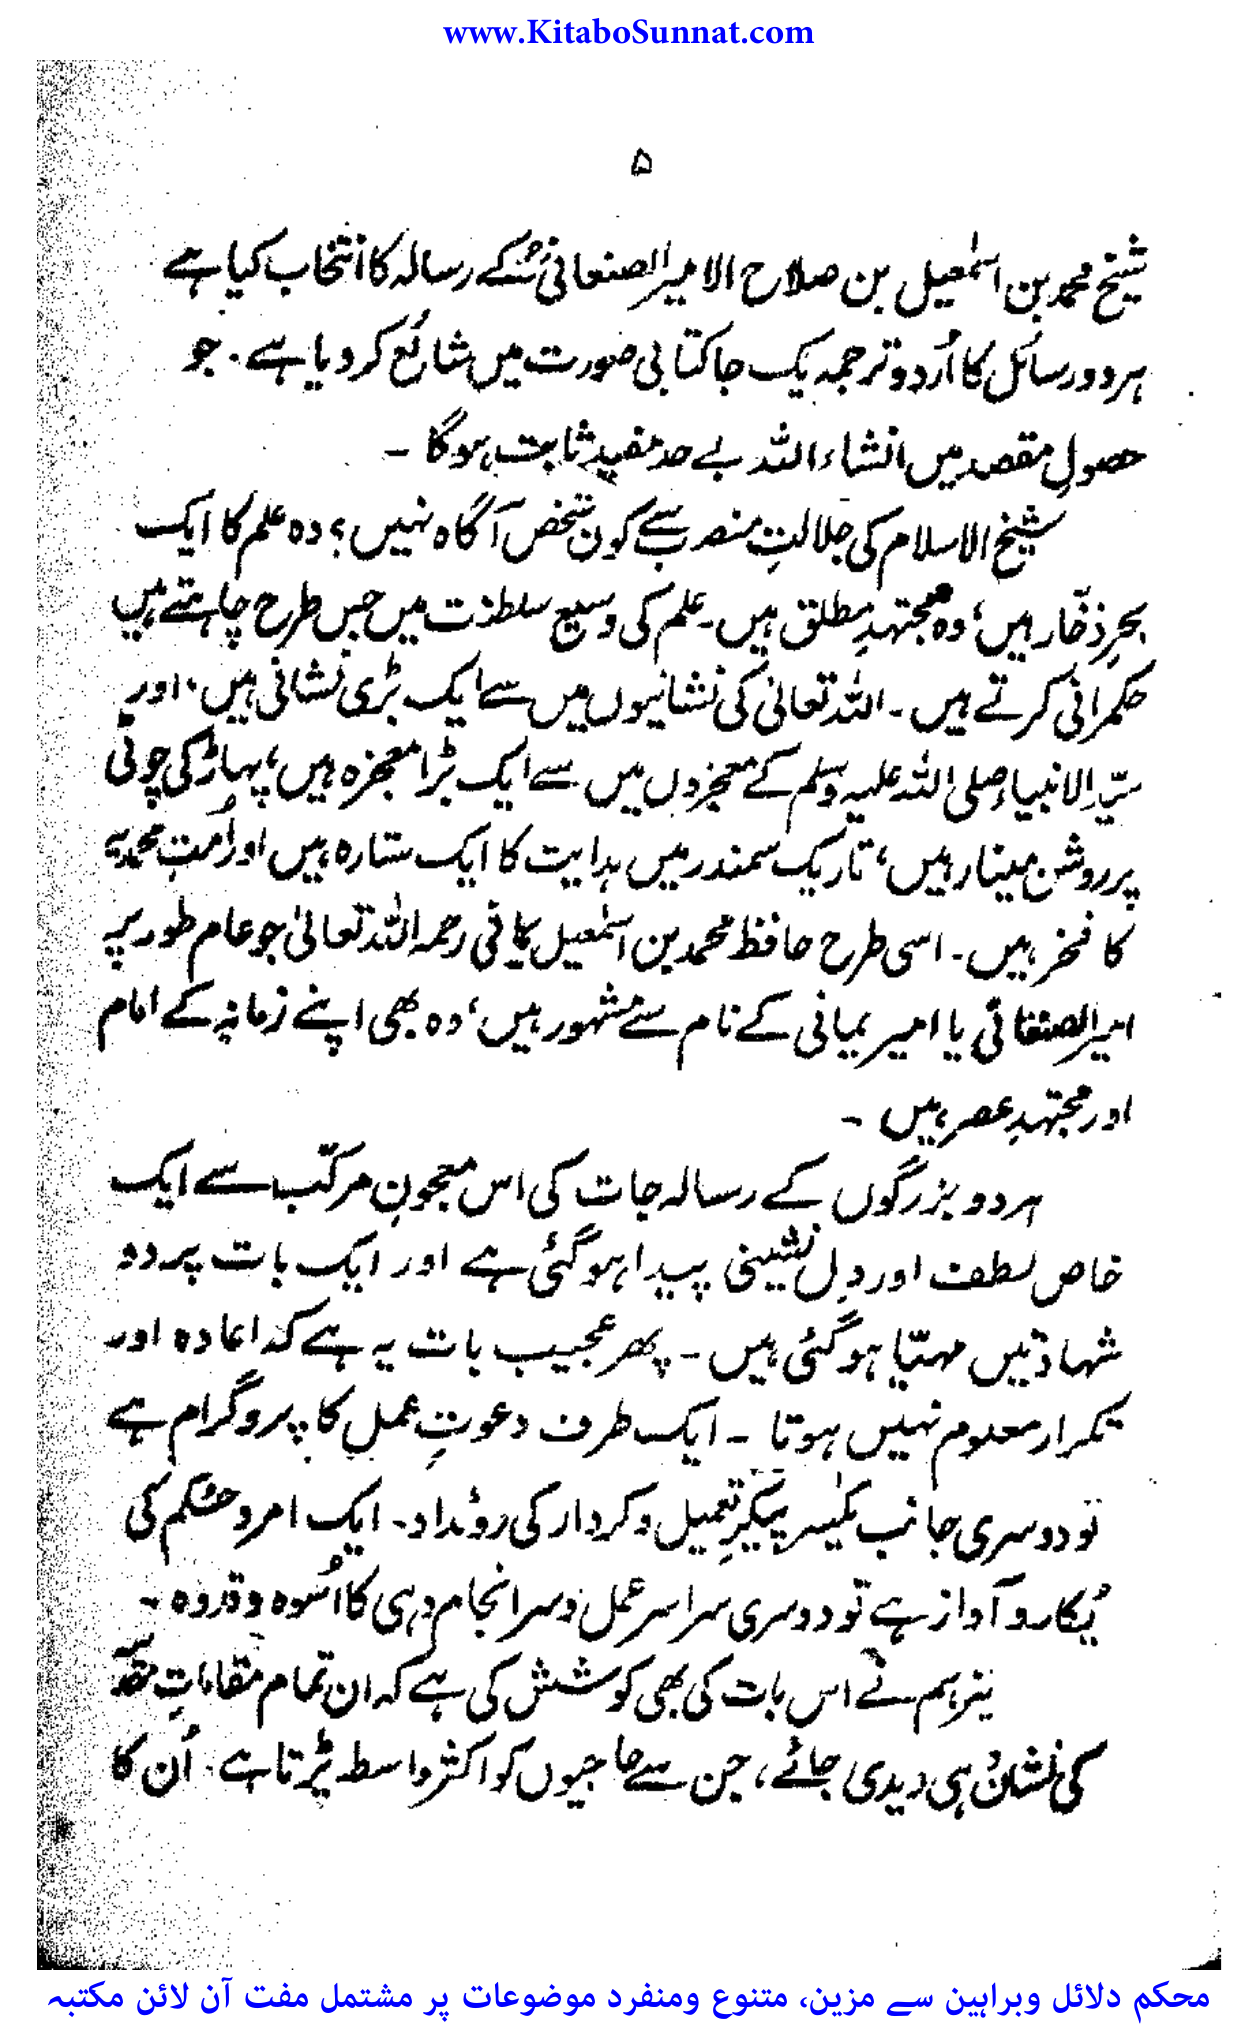 www.KitaboSunnat.com
۵
شیخ محمد بن اسمٰعیل بن صلاح الامیر الصنعانیؒ کے رسالہ کا انتخاب کیا ہے
ہر دو رسائل کا اُردو ترجمہ یک جا کتابی صورت میں شائع کر دیا ہے۔ جو
حصولِ مقصد میں انشاء اللہ بے حد مفید ثابت ہوگا ۔
شیخ الاسلام کی جلالتِ منصب سے کون شخص آگاہ نہیں؟ وہ علم کا ایک
بحرِ ذخّار ہیں، وہ مجتہدِ مطلق ہیں۔ علم کی وسیع سلطنت میں جس طرح چاہتے ہیں
حکمرانی کرتے ہیں ۔ اللہ تعالیٰ کی نشانیوں میں سے ایک بڑی نشانی ہیں۔ اور
سیّد الانبیاء صلی اللہ علیہ وسلم کے معجزوں میں سے ایک بڑا معجزہ ہیں، پہاڑ کی چوٹی
پر روشن مینار ہیں، تاریک سمندر میں ہدایت کا ایک ستارہ ہیں اور اُمتِ محمدیہ
کا فخر ہیں۔ اسی طرح حافظ محمد بن اسمٰعیل رحمہ اللہ تعالیٰ جو عام طور پر
امیر الصنعانی یا امیر یمانی کے نام سے مشہور ہیں، وہ بھی اپنے زمانہ کے امام
اور مجتہدِ عصر ہیں ۔
ہر دو بزرگوں کے رسالہ جات کی اس معجونِ مرکّب سے ایک
خاص لطف اور دِل نشینی پیدا ہوگئی ہے اور ایک بات پر دو
شہادتیں مہیّا ہوگئی ہیں ۔ پھر عجیب بات یہ ہے کہ اعادہ اور
تکرار معلوم نہیں ہوتا ۔ ایک طرف دعوتِ عمل کا پروگرام ہے
تو دوسری جانب یکسر پیکرِ تعمیل و کردار کی روئداد۔ ایک امر و حکم کی
پُکار و آواز ہے تو دوسری سراسر عمل و سرانجام دہی کا اُسوہ و قدوہ ۔
نیز ہم نے اس بات کی بھی کوشش کی ہے کہ ان تمام مقاماتِ مقدّسہ
کی نشان ہی دیدی جائے، جن سے حاجیوں کو اکثر واسطہ پڑتا ہے۔ اُن کا
محکم دلائل وبراہین سے مزین، متنوع ومنفرد موضوعات پر مشتمل مفت آن لائن مکتبہ